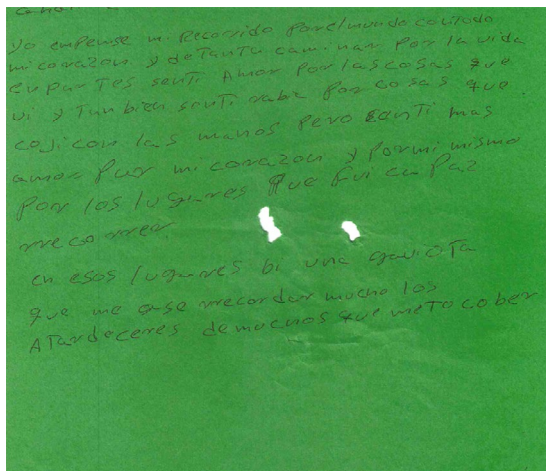 yo empense mi Recorrido por el mundo con todo
mi corazon y de Tanto caminar por la vida
en partes senti Amor por las cosas que
vi y Tan bien senti rabia por cosas que
coji con las manos pero senti mas
amor por mi corazon y por mi mismo
por los lugares que fui capaz
rrecorrer
en esos lugares bi una gaviota
que me ase rrecordar mucho los
ATardeceres de muchos que me toco ber